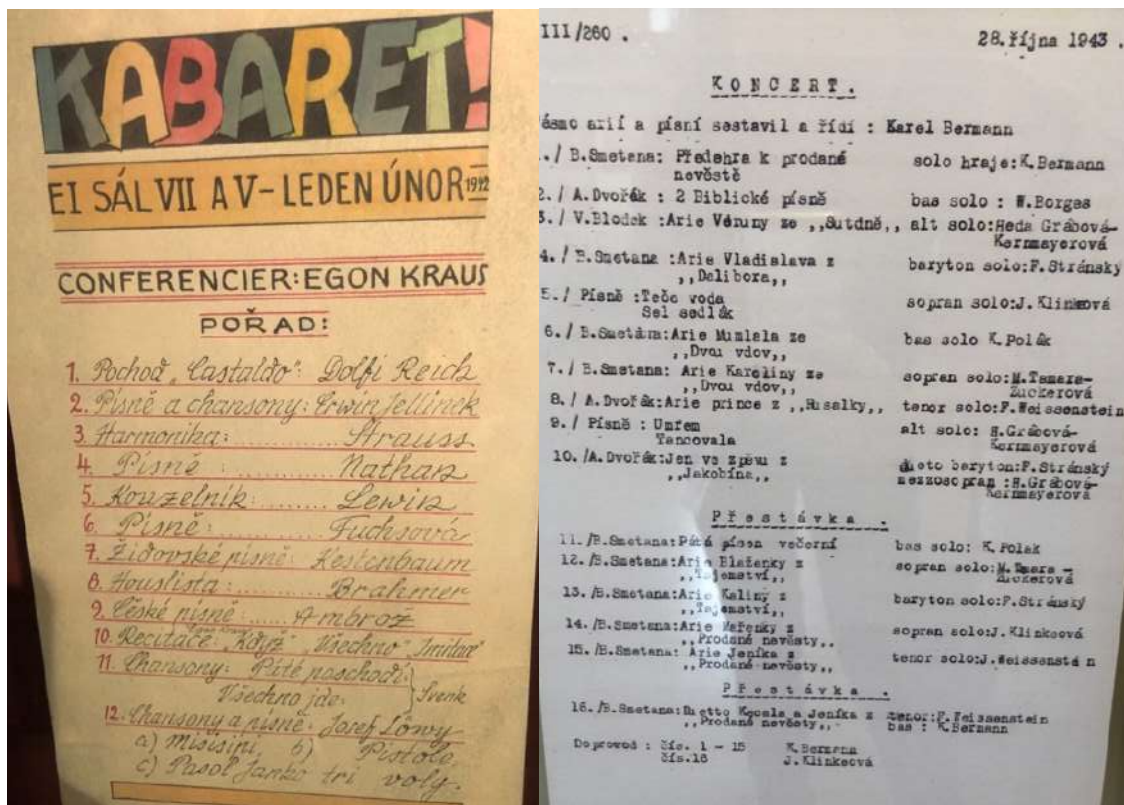 KABARET!
EI SÁL VII A V – LEDEN ÚNOR 1942
CONFERENCIER: EGON KRAUS
POŘAD:
1. Pochod „Castaldo": Dolfi Reich
2. Písně a chansony: Erwin Jellinek
3. Harmonika: Strauss
4. Písně: Nathan
5. Kouzelník: Lewin
6. Písně: Fuchsová
7. Židovské písně: Kestenbaum
8. Houslista: Brahmer
9. České písně Ambrož
10. Recitace: „Když Všechno"
11. Chansony: Páté poschodí:
Všechno jde: Švenk
12. Chansony a písně: Josef Löwy
a) Misisipi, b) Pistole
c) Pasol Janko tri voly.
III/260 .
28.října 1943 .
K O N C E R T .
ásmo arií a písní sestavil a řídí : Karel Bermann
./ B.Smetana: Předehra k prodané solo hraje:K.Bermann
nevěstě
2./ A.Dvořák : 2 Biblické písně bas solo : W.Borges
3./ V.Blodek :Arie Věruny ze ,,Sutdně,, alt solo:Heda Grabová-
Kernmayerová
4./ B.Smetana :Arie Vladislava z baryton solo:F.Stránský
,,Dalibora,,
5./ Písně :Tečo voda sopran solo:J.Klinkeová
Sel sedlák
6./ B.Smetana:Arie Mumlala ze bas solo K.Polák
,,Dvou vdov,,
7./ B.Smetana: Arie Karoliny ze sopran solo:M.Tamara-
,,Dvou vdov,, Zuckerová
8./ A.Dvořák:Arie prince z ,,Rusalky,, tenor solo:F.Weissenstein
9./ Písně : Umřem alt solo: H.Grabová-
Tancovala Kernmayerová
10./A.Dvořák:Jen ve zpěvu z dueto baryton:F.Stránský
,,Jakobína,, mezzosopran :H.Grabová-
Kernmayerová
P ř e s t á v k a .
11./B.Smetana:Pátá píseň večerní bas solo: K.Polak
12./B.Smetana:Arie Blaženky z sopran solo:M.Tamara -
,,Tajemství,, Zuckerová
13./B.Smetana:Arie Kaliny z baryton solo:F.Stránský
,,Tajemství,,
14./B.Smetana:Arie Mařenky z sopran solo:J.Klinkeová
,,Prodané nevěsty,,
15./B.Smetana: Arie Jeníka z tenor solo:J.Weissenstein
,,Prodané nevěsty,,
P ř e s t á v k a .
16./B.Smetana:Duetto Kecala a Jeníka z tenor:F.Weissenstein
,,Prodané nevěsty,, bas : K.Bermann
Doprovod : čís. 1 – 15 K.Bermann
čís.16 J.Klinkeová